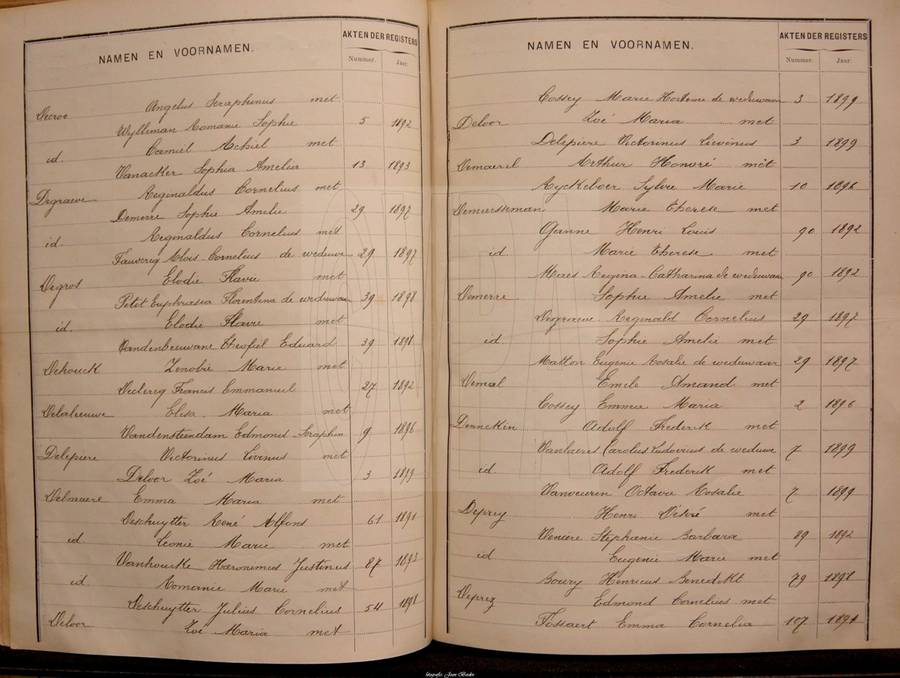 NAMEN EN VOORNAMEN.
AKTEN DER REGISTERS
Nummer. Jaar.
Decroe Angelus Seraphinus met
Wylleman Romanie Sophie 5 1892
id. Camiel Achiel met
Vanacker Sophia Amelia 13 1893
Degraeve Reginaldus Cornelius met
Demerre Sophie Amelie 29 1897
id. Reginaldus Cornelius met
Alois Cornelius de weduwe 29 1897
Degros Elodie Flavie met
Petit Euphrasia Florentina de weduwaar 39 1898
id. Elodie Flavie met
Theofiel Eduard 39 1898
Dehouck Zenobie Marie met
Declercq Francis Emmanuel 27 1892
Elisa Maria met
Vandensteendam Edmond Seraphin 9 1896
Delepiere Victorinus Livinus met
Deloor Zoé Maria 3 1899
Delmaere Emma Maria met
Deschuytter René Alfons 61 1891
id. Leonie Marie met
Vanhoucke Hieronimus Justinus 87 1893
id. Romanie Marie met
Deschuytter Julius Cornelius 54 1898
Deloor Zoé Maria met
NAMEN EN VOORNAMEN.
AKTEN DER REGISTERS
Nummer. Jaar.
Cossey Marie Hortense de weduwaar 3 1899
Deloor Zoé Maria met
Delepiere Victorinus Livinus 3 1899
Demaerel Arthur Honoré met
Ryckeboer Sylvie Marie 10 1896
Demeersseman Marie Therese met
Ganne Henri Louis 90 1892
id Marie Therese met
Maes Regina Catharina de weduwaar 90 1892
Demerre Sophie Amelie met
Degraeve Reginald Cornelius 29 1897
id Sophie Amelie met
Matton Eugenie Rosalie de weduwaar 29 1897
Demol Emile Amand met
Cossey Emma Maria 2 1896
Denneken Adolf Frederik met
Carolus Ludovicus de weduwe 7 1899
id Adolf Frederik met
Vanveuren Octavie Rosalie 7 1899
Deprey Henri Désiré met
Stephanie Barbara 89 1892
id Eugenie Marie met
Boury Henricus Benedikt 79 1898
Deprez Edmond Cornelius met
Tossaert Emma Cornelia 107 1891